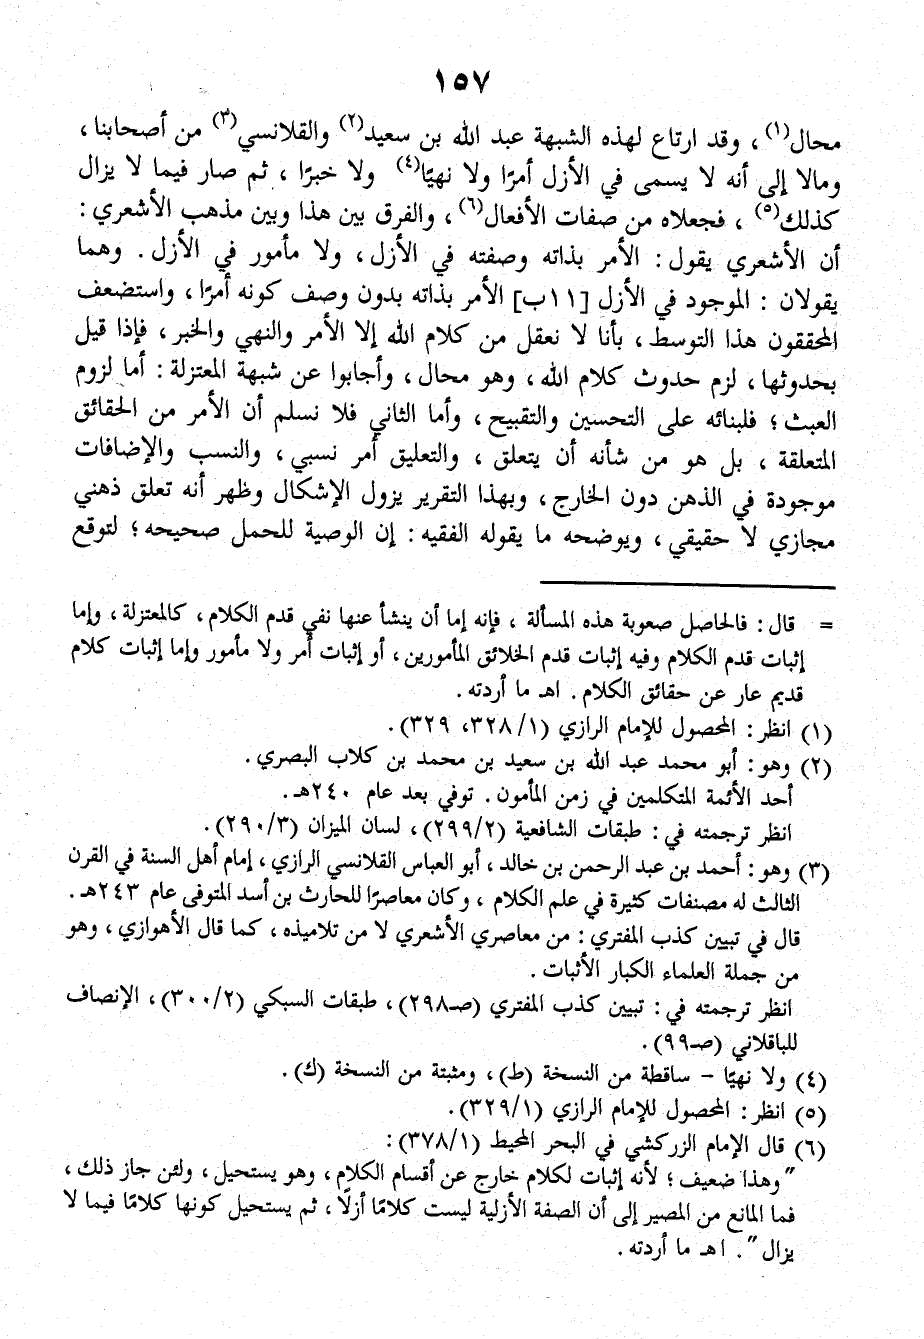 ١٥٧
محال(١) ، وقد ارتاع لهذه الشبهة عبد الله بن سعيد(٢) والقلانسي(٣) من أصحابنا ،
ومالا إلى أنه لا يسمى في الأزل أمرًا ولا نهيًا(٤) ولا خبرًا ، ثم صار فيما لا يزال
كذلك(٥) ، فجعلاه من صفات الأفعال(٦) ، والفرق بين هذا وبين مذهب الأشعري :
أن الأشعري يقول : الأمر بذاته وصفته في الأزل ، ولا مأمور في الأزل . وهما
يقولان : الموجود في الأزل [١١ب] الأمر بذاته بدون وصف كونه أمرًا ، واستضعف
المحققون هذا التوسط ، بأنا لا نعقل من كلام الله إلا الأمر والنهي والخبر ، فإذا قيل
بحدوثها ، لزم حدوث كلام الله ، وهو محال ، وأجابوا عن شبهة المعتزلة : أما لزوم
العبث ؛ فلبنائه على التحسين والتقبيح ، وأما الثاني فلا نسلم أن الأمر من الحقائق
المتعلقة ، بل هو من شأنه أن يتعلق ، والتعليق أمر نسبي ، والنسب والإضافات
موجودة في الذهن دون الخارج ، وبهذا التقرير يزول الإشكال وظهر أنه تعلق ذهني
مجازي لا حقيقي ، ويوضحه ما يقوله الفقيه : إن الوصية للحمل صحيحه ؛ لتوقع
= قال : فالحاصل صعوبة هذه المسألة ، فإنه إما أن ينشأ عنها نفي قدم الكلام ، كالمعتزلة ، وإما
إثبات قدم الكلام وفيه إثبات قدم الخلائق المأمورين ، أو إثبات أمر ولا مأمور وإما إثبات كلام
قديم عار عن حقائق الكلام . اهـ ما أردته .
(١) انظر : المحصول للإمام الرازي (١/ ٣٢٨، ٣٢٩).
(٢) وهو : أبو محمد عبد الله بن سعيد بن محمد بن كلاب البصري .
أحد الأئمة المتكلمين في زمن المأمون . توفي بعد عام ٢٤٠هـ.
انظر ترجمته في : طبقات الشافعية (٢/ ٢٩٩) ، لسان الميزان (٣/ ٢٩٠).
(٣) وهو : أحمد بن عبد الرحمن بن خالد ، أبو العباس القلانسي الرازي ، إمام أهل السنة في القرن
الثالث له مصنفات كثيرة في علم الكلام ، وكان معاصرًا للحارث بن أسد المتوفى عام ٢٤٣هـ .
قال في تبيين كذب المفتري : من معاصري الأشعري لا من تلاميذه ، كما قال الأهوازي ، وهو
من جملة العلماء الكبار الأثبات .
انظر ترجمته في : تبيين كذب المفتري (صـ٢٩٨) ، طبقات السبكي (٢/ ٣٠٠) ، الإنصاف
للباقلاني (صـ٩٩) .
(٤) ولا نهيًا - ساقطة من النسخة (ط) ، ومثبتة من النسخة (ك) .
(٥) انظر : المحصول للإمام الرازي (١/ ٣٢٩).
(٦) قال الإمام الزركشي في البحر المحيط (١/ ٣٧٨):
"وهذا ضعيف ؛ لأنه إثبات لكلام خارج عن أقسام الكلام ، وهو يستحيل ، ولئن جاز ذلك ،
فما المانع من المصير إلى أن الصفة الأزلية ليست كلامًا أزلًا ، ثم يستحيل كونها كلامًا فيما لا
يزال" . اهـ ما أردته .